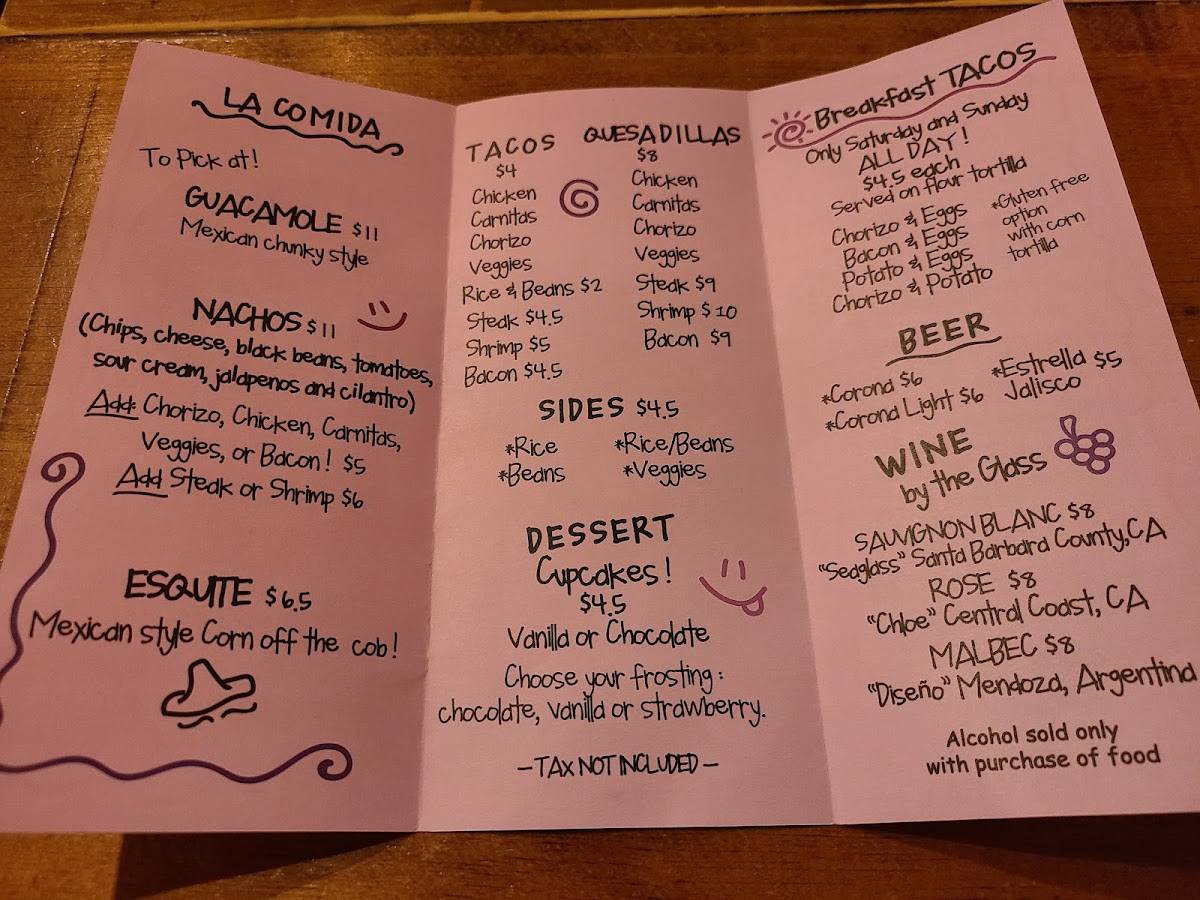 LA COMIDA
To Pick at!
GUACAMOLE $11
Mexican chunky style
NACHOS $11
(Chips, cheese, black beans, tomatoes,
sour cream, jalapenos and cilantro)
Add: Chorizo, Chicken, Carnitas,
Veggies, or Bacon! $5
Add Steak or Shrimp $6
ESQUITE $6.5
Mexican style Corn off the cob!
TACOS
$4
Chicken
Carnitas
Chorizo
Veggies
Rice & Beans $2
Steak $4.5
Shrimp $5
Bacon $4.5
QUESADILLAS
$8
Chicken
Carnitas
Chorizo
Veggies
Steak $9
Shrimp $10
Bacon $9
SIDES $4.5
*Rice *Rice/Beans
*Beans *Veggies
DESSERT
Cupcakes!
$4.5
Vanilla or Chocolate
Choose your frosting:
chocolate, vanilla or strawberry.
- TAX NOT INCLUDED -
Breakfast TACOS
Only Saturday and Sunday
ALL DAY!
$4.5 each
Served on flour tortilla
Chorizo & Eggs
Bacon & Eggs
Potato & Eggs
Chorizo & Potato
*Gluten free
option
with corn
tortilla
BEER
*Corona $6
*Corona Light $6
*Estrella $5
Jalisco
WINE
by the Glass
SAUVIGNON BLANC $8
"Seaglass" Santa Barbara County, CA
ROSE $8
"Chloe" Central Coast, CA
MALBEC $8
"Diseño" Mendoza, Argentina
Alcohol sold only
with purchase of food